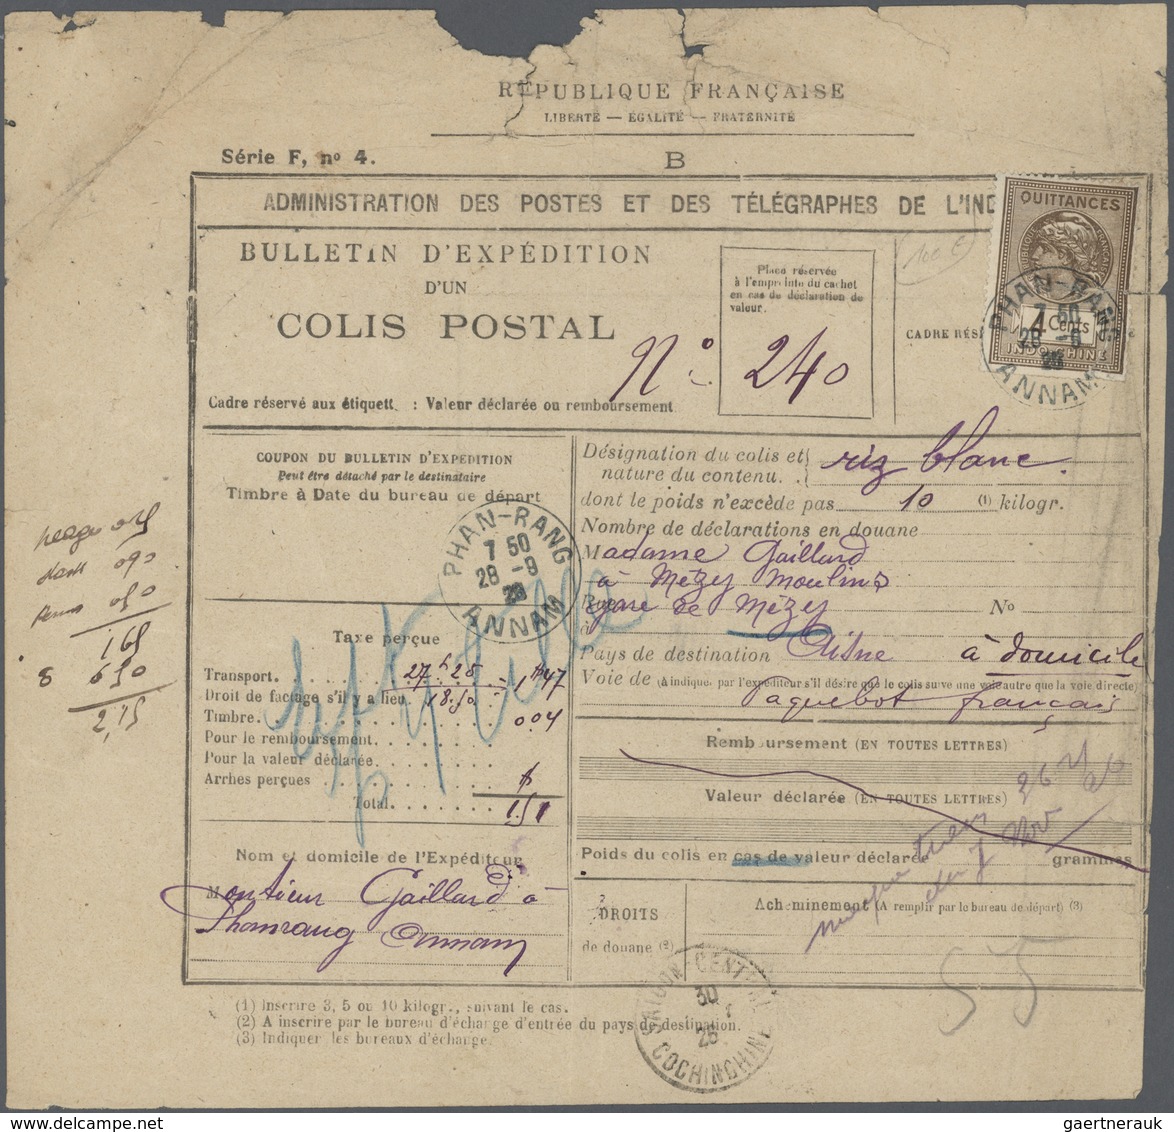 RÉPUBLIQUE FRANÇAISE
LIBERTÉ — EGALITÉ — FRATERNITÉ
Série F, nº 4.
B
ADMINISTRATION DES POSTES ET DES TÉLÉGRAPHES DE L'IND
QUITTANCES
4 Cents
INDOCHINE
PHAN-RANG
7 50
28 -9
ANNAM
BULLETIN D'EXPÉDITION
D'UN
COLIS POSTAL
Place réservée
à l'empreinte du cachet
en cas de déclaration de
valeur.
100 €
CADRE RÉS
Nº 240
Cadre réservé aux étiquett : Valeur déclarée ou remboursement
COUPON DU BULLETIN D'EXPEDITION
Peut être détaché par le destinataire
Timbre à Date du bureau de départ
PHAN-RANG
7 50
28 -9
ANNAM
Taxe perçue
Transport. 27f 25 1 $ 47
Droit de factage s'il y a lieu. 18.50
Timbre. 0 04
Pour le remboursement.
Pour la valeur déclarée
Arrhes perçues
Total. 1.51
Nom et domicile de l'Expéditeur
Monsieur Gaillard à
Phanrang Annam
090
1 65
2,15
Désignation du colis et
nature du contenu. riz blanc.
dont le poids n'excède pas 10 (1) kilogr.
Nombre de déclarations en douane
Madame Gaillard
à Mézy Moulins
Rue gare de Mézy Nº
à
Pays de destination Aisne à domicile
Voie de (A indiquer par l'expéditeur s'il désire que le colis suive une voie autre que la voie directe)
Paquebot français
Remboursement (EN TOUTES LETTRES)
Valeur déclarée (EN TOUTES LETTRES)
Poids du colis en cas de valeur déclarée grammes
DROITS
de douane (2)
Acheminement (A remplir par le bureau de départ) (3)
55
SAIGON-CENTRAL
30
COCHINCHINE
(1) Inscrire 3, 5 ou 10 kilogr., suivant le cas.
(2) A inscrire par le bureau d'échange d'entrée du pays de destination.
(3) Indiquer les bureaux d'échange.
gaertnerauk@delcampe.net